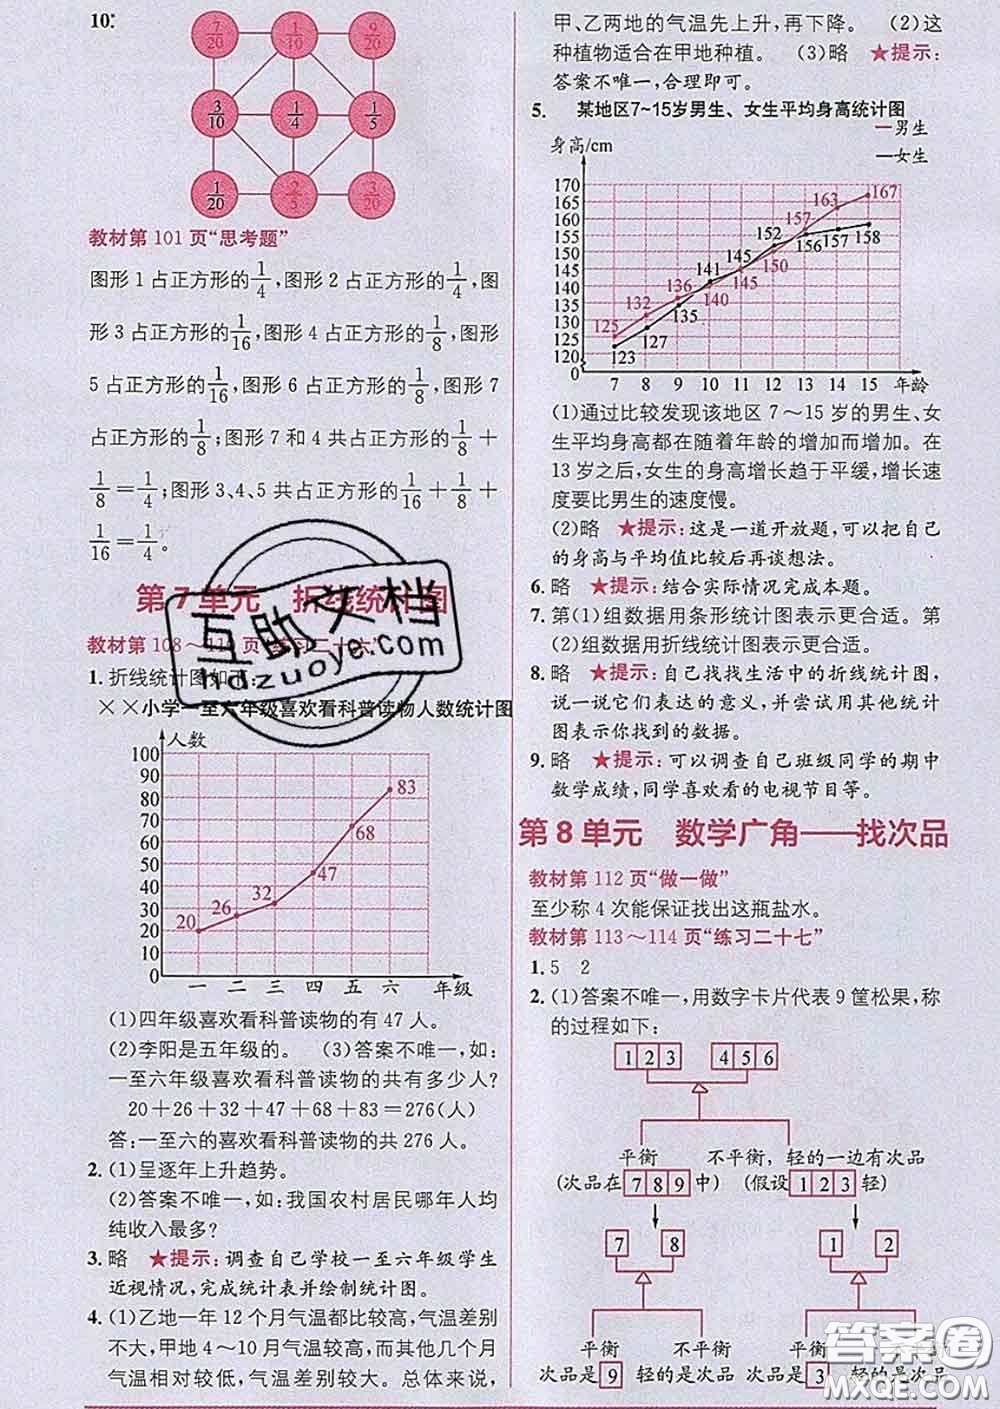 10.
7/20 1/10 9/20
3/10 1/4 1/5
1/20 2/5 3/20
教材第 101 页“思考题”
图形 1 占正方形的1/4,图形 2 占正方形的1/4,图
形 3 占正方形的1/16,图形 4 占正方形的1/8,图形
5 占正方形的1/16,图形 6 占正方形的1/8,图形 7
占正方形的1/8;图形 7 和 4 共占正方形的1/8+
1/8=1/4;图形 3、4、5 共占正方形的1/16+1/8+
1/16=1/4。
第 7 单元 折线统计图
教材第 108～110 页“练习二十六”
1. 折线统计图如下:
××小学一至六年级喜欢看科普读物人数统计图
人数
100
90
80
70
60
50
40
30
20
10
0
20 26 32 47 68 83
一 二 三 四 五 六 年级
(1)四年级喜欢看科普读物的有 47 人。
(2)李阳是五年级的。 (3)答案不唯一,如:
一至六年级喜欢看科普读物的共有多少人?
20+26+32+47+68+83=276(人)
答:一至六的喜欢看科普读物的共 276 人。
2. (1)呈逐年上升趋势。
(2)答案不唯一,如:我国农村居民哪年人均
纯收入最多?
3. 略 ★提示:调查自己学校一至六年级学生
近视情况,完成统计表并绘制统计图。
4. (1)乙地一年 12 个月气温都比较高,气温差别
不大,甲地 4～10 月气温较高,而其他几个月
气温相对较低,气温差别较大。总体来说,
甲、乙两地的气温先上升,再下降。 (2)这
种植物适合在甲地种植。 (3)略 ★提示:
答案不唯一,合理即可。
5. 某地区7~15岁男生、女生平均身高统计图
男生
女生
身高/cm
170
165
160
155
150
145
140
135
130
125
120
0
125 132 136 140 145 150 157 163 167
123 127 135 141 145 152 156 157 158
7 8 9 10 11 12 13 14 15 年龄
(1)通过比较发现该地区 7～15 岁的男生、女
生平均身高都在随着年龄的增加而增加。在
13 岁之后,女生的身高增长趋于平缓,增长速
度要比男生的速度慢。
(2)略 ★提示:这是一道开放题,可以把自己
的身高与平均值比较后再谈想法。
6. 略 ★提示:结合实际情况完成本题。
7. 第(1)组数据用条形统计图表示更合适。第
(2)组数据用折线统计图表示更合适。
8. 略 ★提示:自己找找生活中的折线统计图,
说一说它们表达的意义,并尝试用其他统计
图表示你找到的数据。
9. 略 ★提示:可以调查自己班级同学的期中
数学成绩,同学喜欢看的电视节目等。
第 8 单元 数学广角——找次品
教材第 112 页“做一做”
至少称 4 次能保证找出这瓶盐水。
教材第 113～114 页“练习二十七”
1. 5 2
2. (1)答案不唯一,用数字卡片代表 9 筐松果,称
的过程如下:
1 2 3 4 5 6
平衡 不平衡,轻的一边有次品
(次品在 7 8 9 中) (假设 1 2 3 轻)
7 8 1 2
平衡 不平衡 平衡 不平衡
次品是 9 轻的是次品 次品是 3 轻的是次品
互助文档
hdzuoye.com
答案圈
MXQE.COM